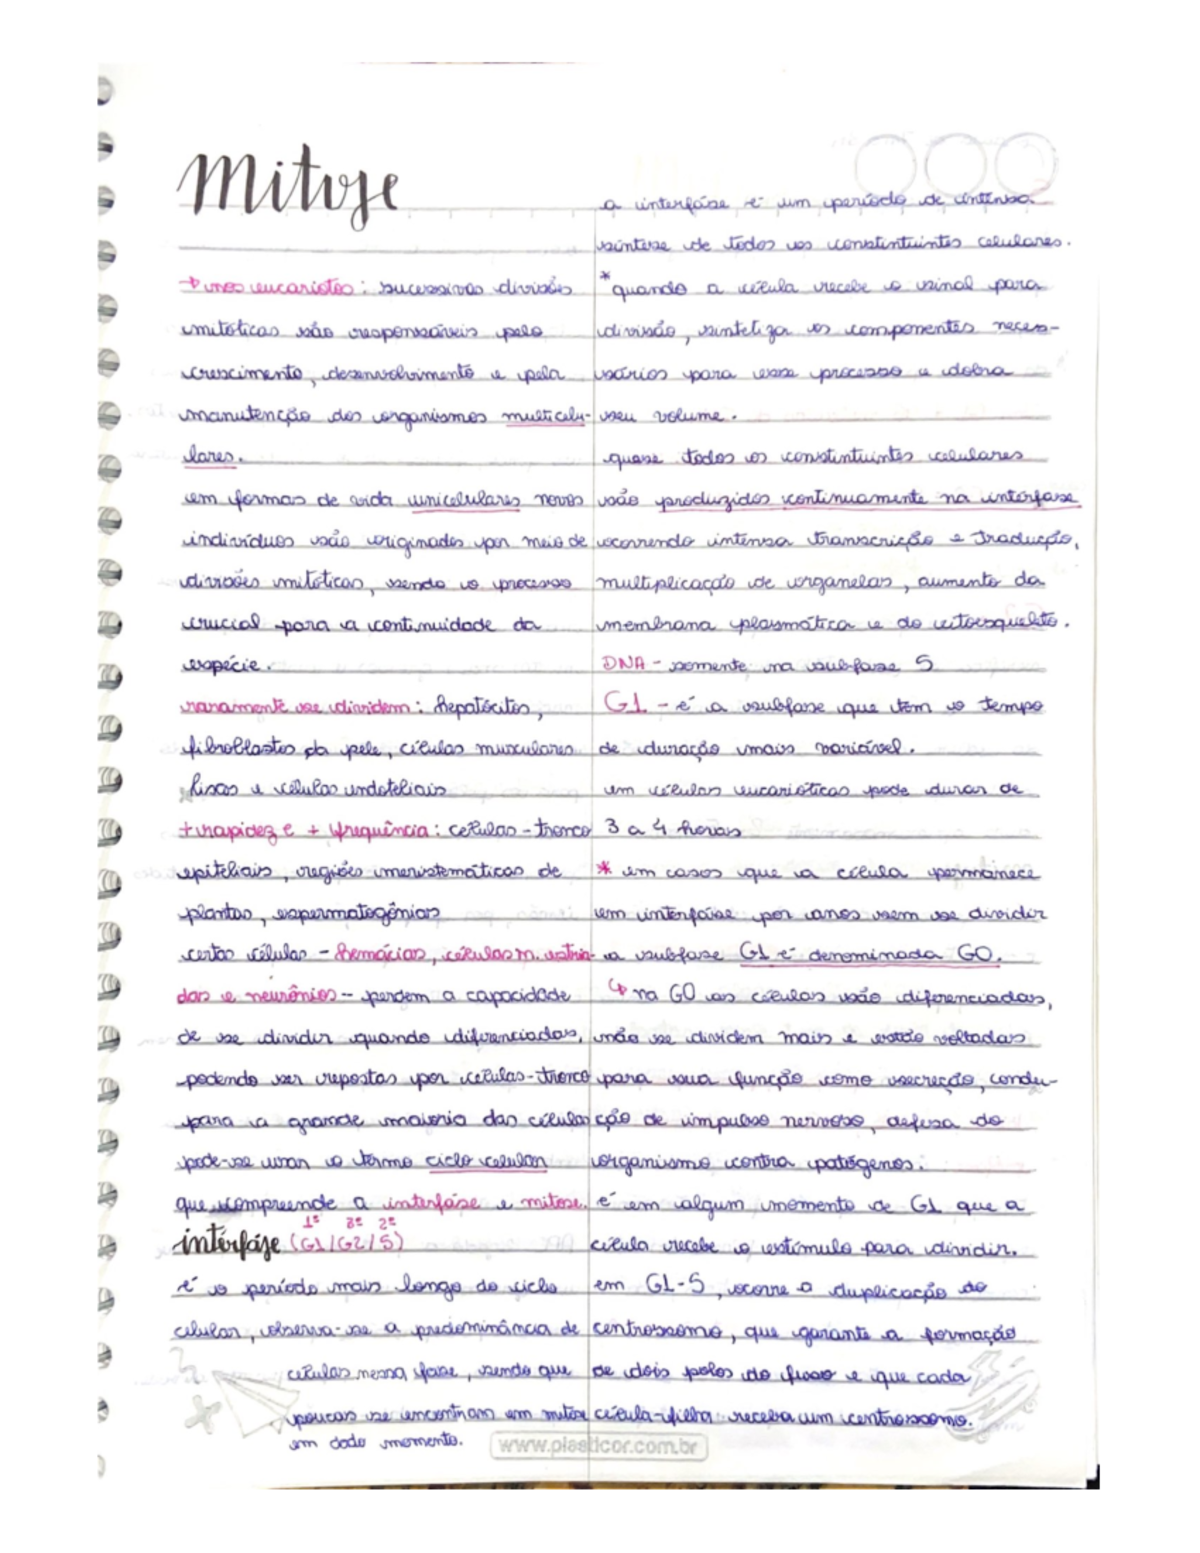 Mitose
→ nos eucariotos: sucessivas divisões
mitóticas são responsáveis pelo
crescimento, desenvolvimento e pela
manutenção dos organismos multicelu-
lares.
em formas de vida unicelulares novos
indivíduos são originados por meio de
divisões mitóticas, sendo o processo
crucial para a continuidade da
espécie.
raramente se dividem: hepatócitos,
fibroblastos da pele, células musculares
lisas e células endoteliais
+ rapidez e + frequência: células-tronco
epiteliais, regiões meristemáticas de
plantas, espermatogônias
certas células - hemácias, células m. estria-
das e neurônios - perdem a capacidade
de se dividir quando diferenciadas,
podendo ser repostas por células-tronco
para a grande maioria das células
pode-se usar o termo ciclo celular
que compreende a interfáse e mitose.
1º 3º 2º
intérfase (G1/G2/S)
é o período mais longo do ciclo
celular, observa-se a predominância de
células nessa fase, sendo que
poucas se encontram em mitose
em dado momento.
a interfáse é um período de intensa
síntese de todos os constintuintes celulares.
*quando a célula recebe o sinal para
divisão, sintetiza os componentes neces-
sários para esse processo e dobra
seu volume.
quase todos os constintuintes celulares
são produzidos continuamente na intérfase
ocorrendo intensa transcrição e tradução,
multiplicação de organelas, aumento da
membrana plasmática e do citoesqueleto.
DNA - somente na subfase S
G1 - é a subfase que tem o tempo
de duração mais variável.
em células eucarióticas pode durar de
3 a 4 horas
* em casos que a célula permanece
em interfáse por anos sem se dividir
a subfase G1 é denominada G0.
↳ na G0 as células são diferenciadas,
não se dividem mais e estão voltadas
para sua função como secreção, condu-
ção de impulso nervoso, defesa do
organismo contra patógenos.
é em algum momento de G1 que a
célula recebe o estímulo para dividir.
em G1-S, ocorre a duplicação do
centrossomo, que garante a formação
de dois polos do fuso e que cada
célula-filha receba um centrossomo.
www.plasticor.com.br